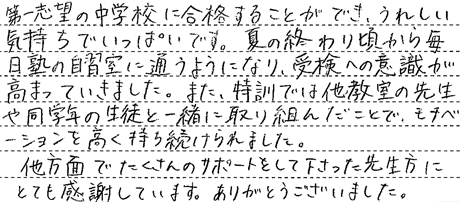 第一志望の中学校に合格することができ、うれしい
気持ちでいっぱいです。夏の終わり頃から毎
日塾の自習室に通うようになり、受検への意識が
高まっていきました。また、特訓では他教室の先生
や同学年の生徒と一緒に取り組んだことで、モチベ
ーションを高く持ち続けられました。
他方面でたくさんのサポートをして下さった先生方に
とても感謝しています。ありがとうございました。